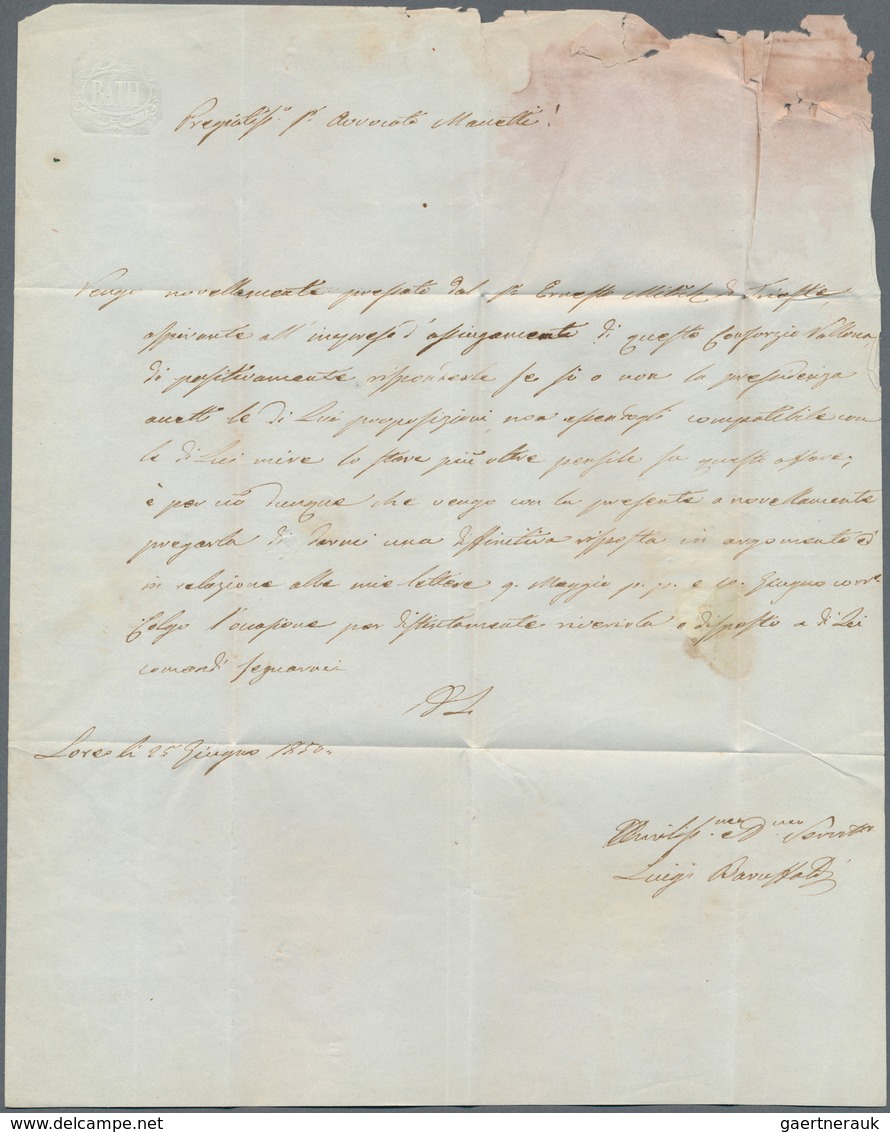 BATH
Pregiatiss.o Sr. Avvocato Manetti!
Vengo novellamente pressato dal Sr. Ernesto di Trieste
aspirante all' impresa d' asciugamento di questo Consorzio Vallona
di positivamente risponderle se si o non la presidenza
accetti le di Lui proposizioni non essendogli compatibile con
le di Lui mire lo stare più oltre pensile su questo affare;
è per ciò dunque che vengo con la presente a novellamente
pregarla di darmi una diffinitiva risposta in argomento ed
in relazione alle mie lettere 9. Maggio p. p. e 10. Giugno corre
Colgo l'occasione per distintamente riverirla e disposto a di Lei
comandi segnarmi
Loreo li 25 Giugno 1850.
Umiliss.mo e D.mo Servitore
Luigi Baruffaldi
gaertnerauk